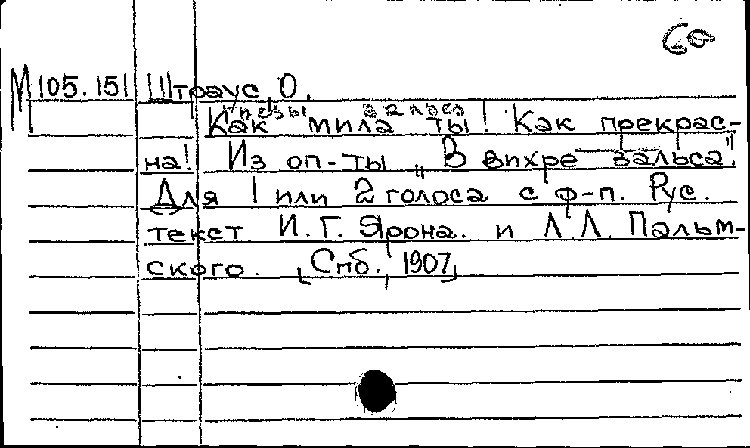 Со
М 105.151 Штраус, О.
Как мила ты! Как прекрас-
на! Из оп-ты „В вихре вальса".
Для 1 или 2 голоса с ф-п. Рус.
текст И. Г. Ярона. и Л.Л. Пальм-
ского. [Спб., 1907]